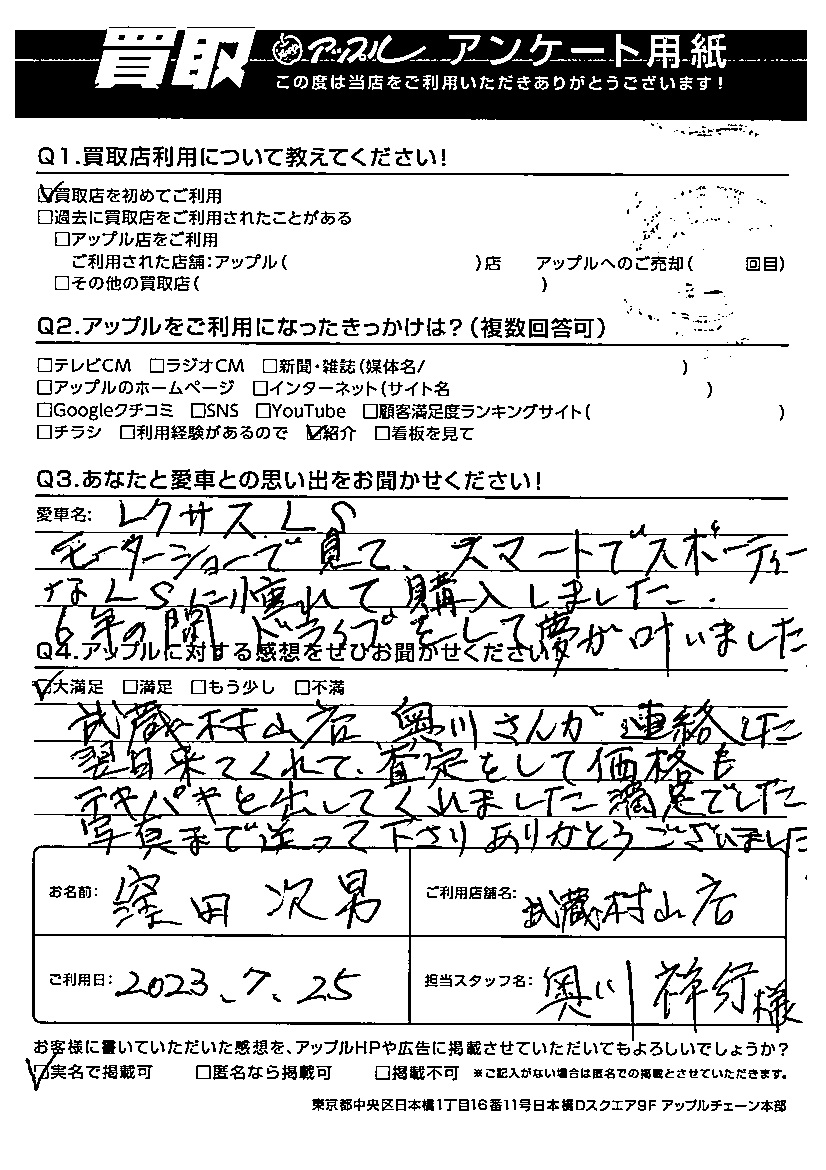 買取 アップル アンケート用紙
この度は当店をご利用いただきありがとうございます!
Q1.買取店利用について教えてください!
☑買取店を初めてご利用
□過去に買取店をご利用されたことがある
□アップル店をご利用
ご利用された店舗:アップル( )店 アップルへのご売却( 回目)
□その他の買取店( )
Q2.アップルをご利用になったきっかけは?(複数回答可)
□テレビCM □ラジオCM □新聞・雑誌(媒体名/ )
□アップルのホームページ □インターネット(サイト名 )
□Googleクチコミ □SNS □YouTube □顧客満足度ランキングサイト( )
□チラシ □利用経験があるので ☑紹介 □看板を見て
Q3.あなたと愛車との思い出をお聞かせください!
愛車名: レクサス LS
モーターショーで見て、スマートでスポーティー
なLSに憧れて購入しました.
6年の間 ドライブをして夢が叶いました
Q4.アップルに対する感想をぜひお聞かせください!
☑大満足 □満足 □もう少し □不満
武蔵村山店 奥川さんが連絡した
翌日来てくれて、査定をして価格も
テキパキと出してくれました 満足でした
写真まで送って下さりありがとうございました
お名前: 窪田 次男 ご利用店舗名: 武蔵村山店
ご利用日: 2023.7.25 担当スタッフ名: 奥川 様
お客様に書いていただいた感想を、アップルHPや広告に掲載させていただいてもよろしいでしょうか?
☑実名で掲載可 □匿名なら掲載可 □掲載不可 ※ご記入がない場合は匿名での掲載とさせていただきます。
東京都中央区日本橋1丁目16番11号日本橋Dスクエア9F アップルチェーン本部